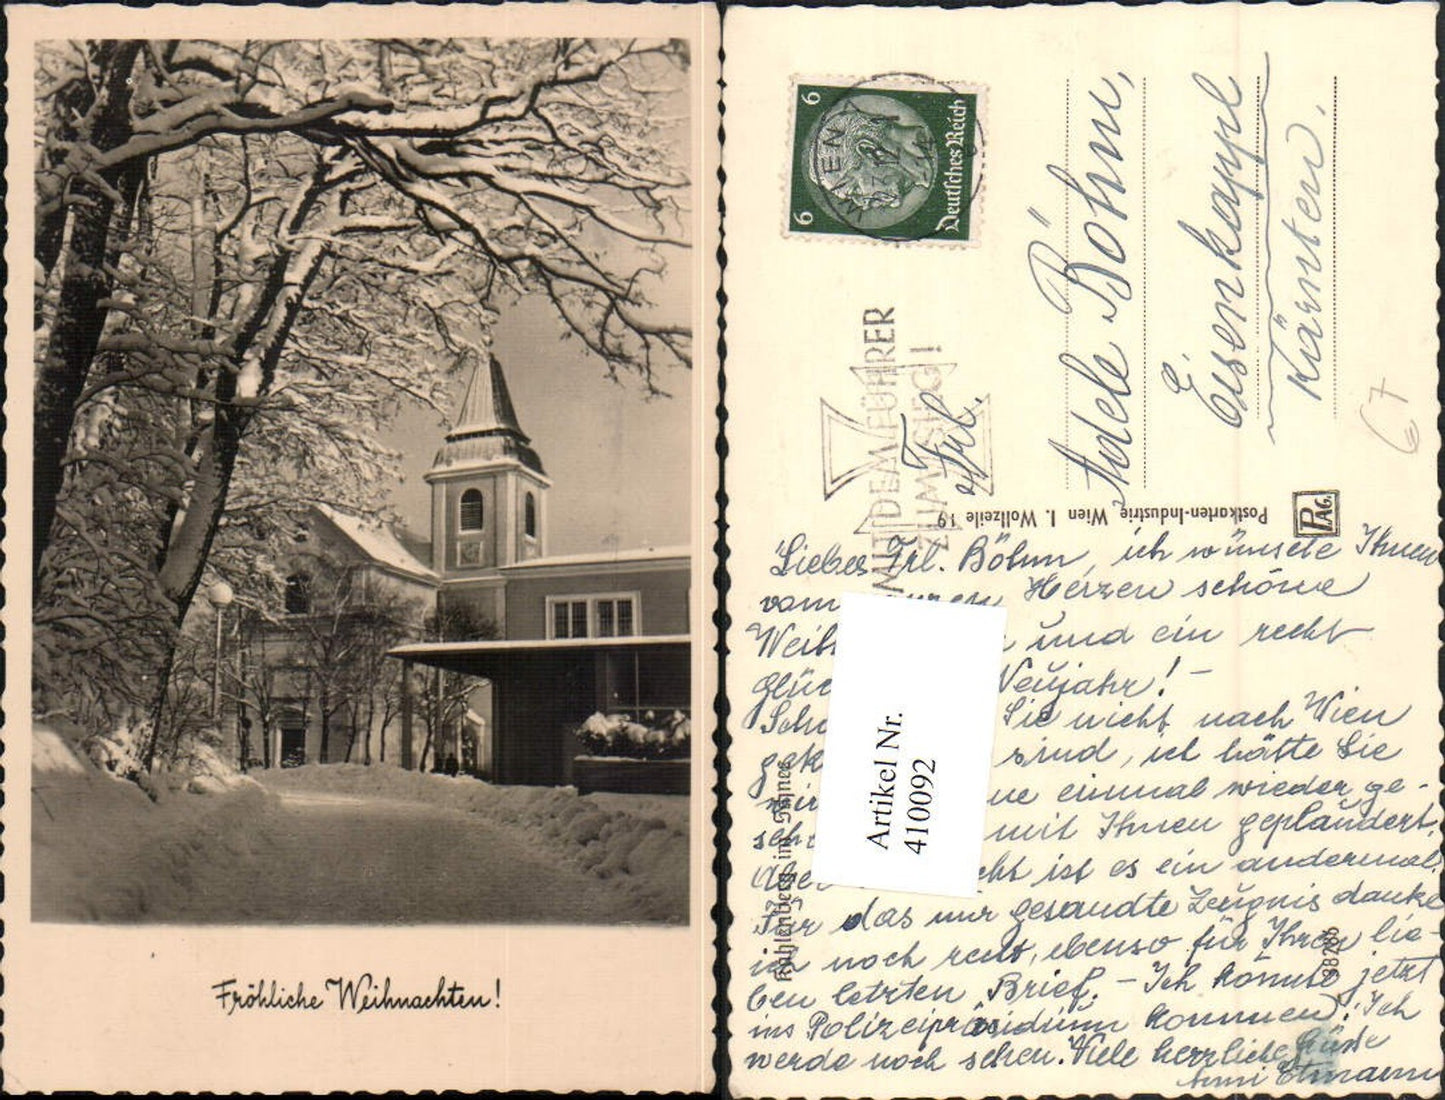 Fröhliche Weihnachten!
6
6
Deutsches Reich
WIEN
MIT DEM FÜHRER
ZUM SIEG!
Frl.
Adele Böhm,
Eisenkappl
Kärnten.
67
Postkarten-Industrie, Wien I. Wollzeile 19
PAG.
Kahlenberg im Schnee
Artikel Nr.
410092
Liebes Frl. Böhm, ich wünsche Ihnen
vom Herzen schöne
Weih und ein recht
glüc Neujahr! -
Sie nicht nach Wien
sind, ich hätte Sie
einmal wieder ge-
mit Ihnen geplaudert.
Aber ist es ein andermal.
Für das mir gesandte Zeugnis danke
ich noch recht, ebenso für Ihren lie-
ben letzten Brief. - Ich könnte jetzt
ins Polizeipräsidium kommen. Ich
werde noch sehen. Viele herzliche Grüsse
Etmann